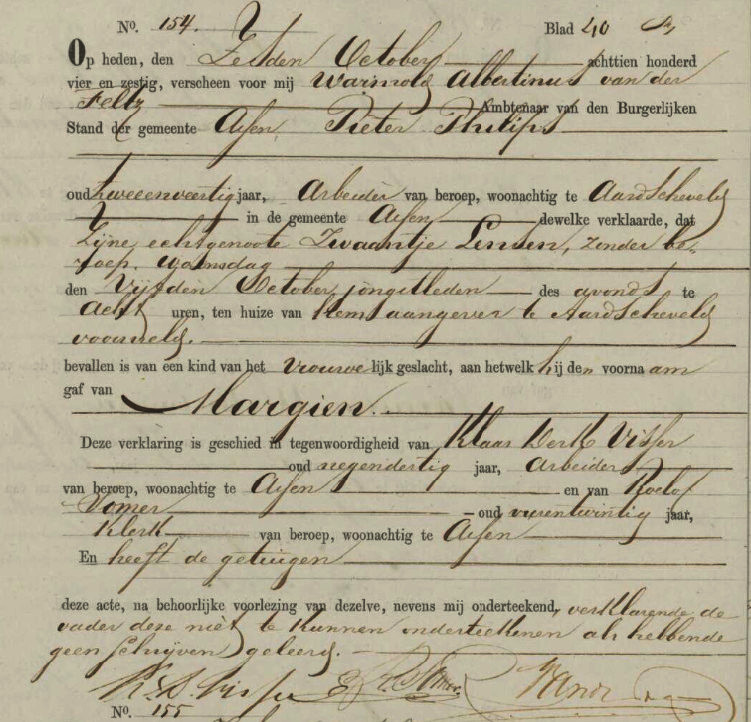 No. 154. Blad 40
Op heden, den Zesden October achttien honderd
vier en zestig, verscheen voor mij Warmold Albertinus van der
Feltz Ambtenaar van den Burgerlijken
Stand der gemeente Assen, Pieter Philips
oud tweeenveertig jaar, Arbeider van beroep, woonachtig te Aardscheveld
in de gemeente Assen dewelke verklaarde, dat
zijne echtgenoote Zwaantje Lensen, zonder be-
roep, woensdag
den Vijfden October, jongstleden des avonds te
Acht uren, ten huize van hem aangever te Aardscheveld
voormeld.
bevallen is van een kind van het Vrouwelijk geslacht, aan hetwelk hij den voornaam
gaf van Margien.
Deze verklaring is geschied in tegenwoordigheid van Klaas Derk Visser
oud negendertig jaar, Arbeider
van beroep, woonachtig te Assen en van Roelof
Somer oud vierentwintig jaar,
Klerk van beroep, woonachtig te Assen
En heeft de getuigen
deze acte, na behoorlijke voorlezing van dezelve, nevens mij onderteekend, verklarende de
vader deze niet te kunnen onderteekenen als hebbende
geen schrijven geleerd.
K. D. Visser
No. 155